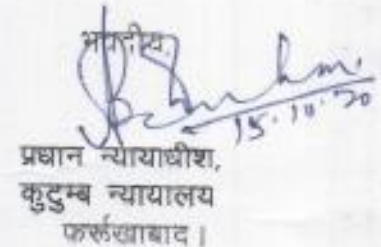 भवदीय,
15.10.20
प्रधान न्यायाधीश,
कुटुम्ब न्यायालय
फर्रूखाबाद।